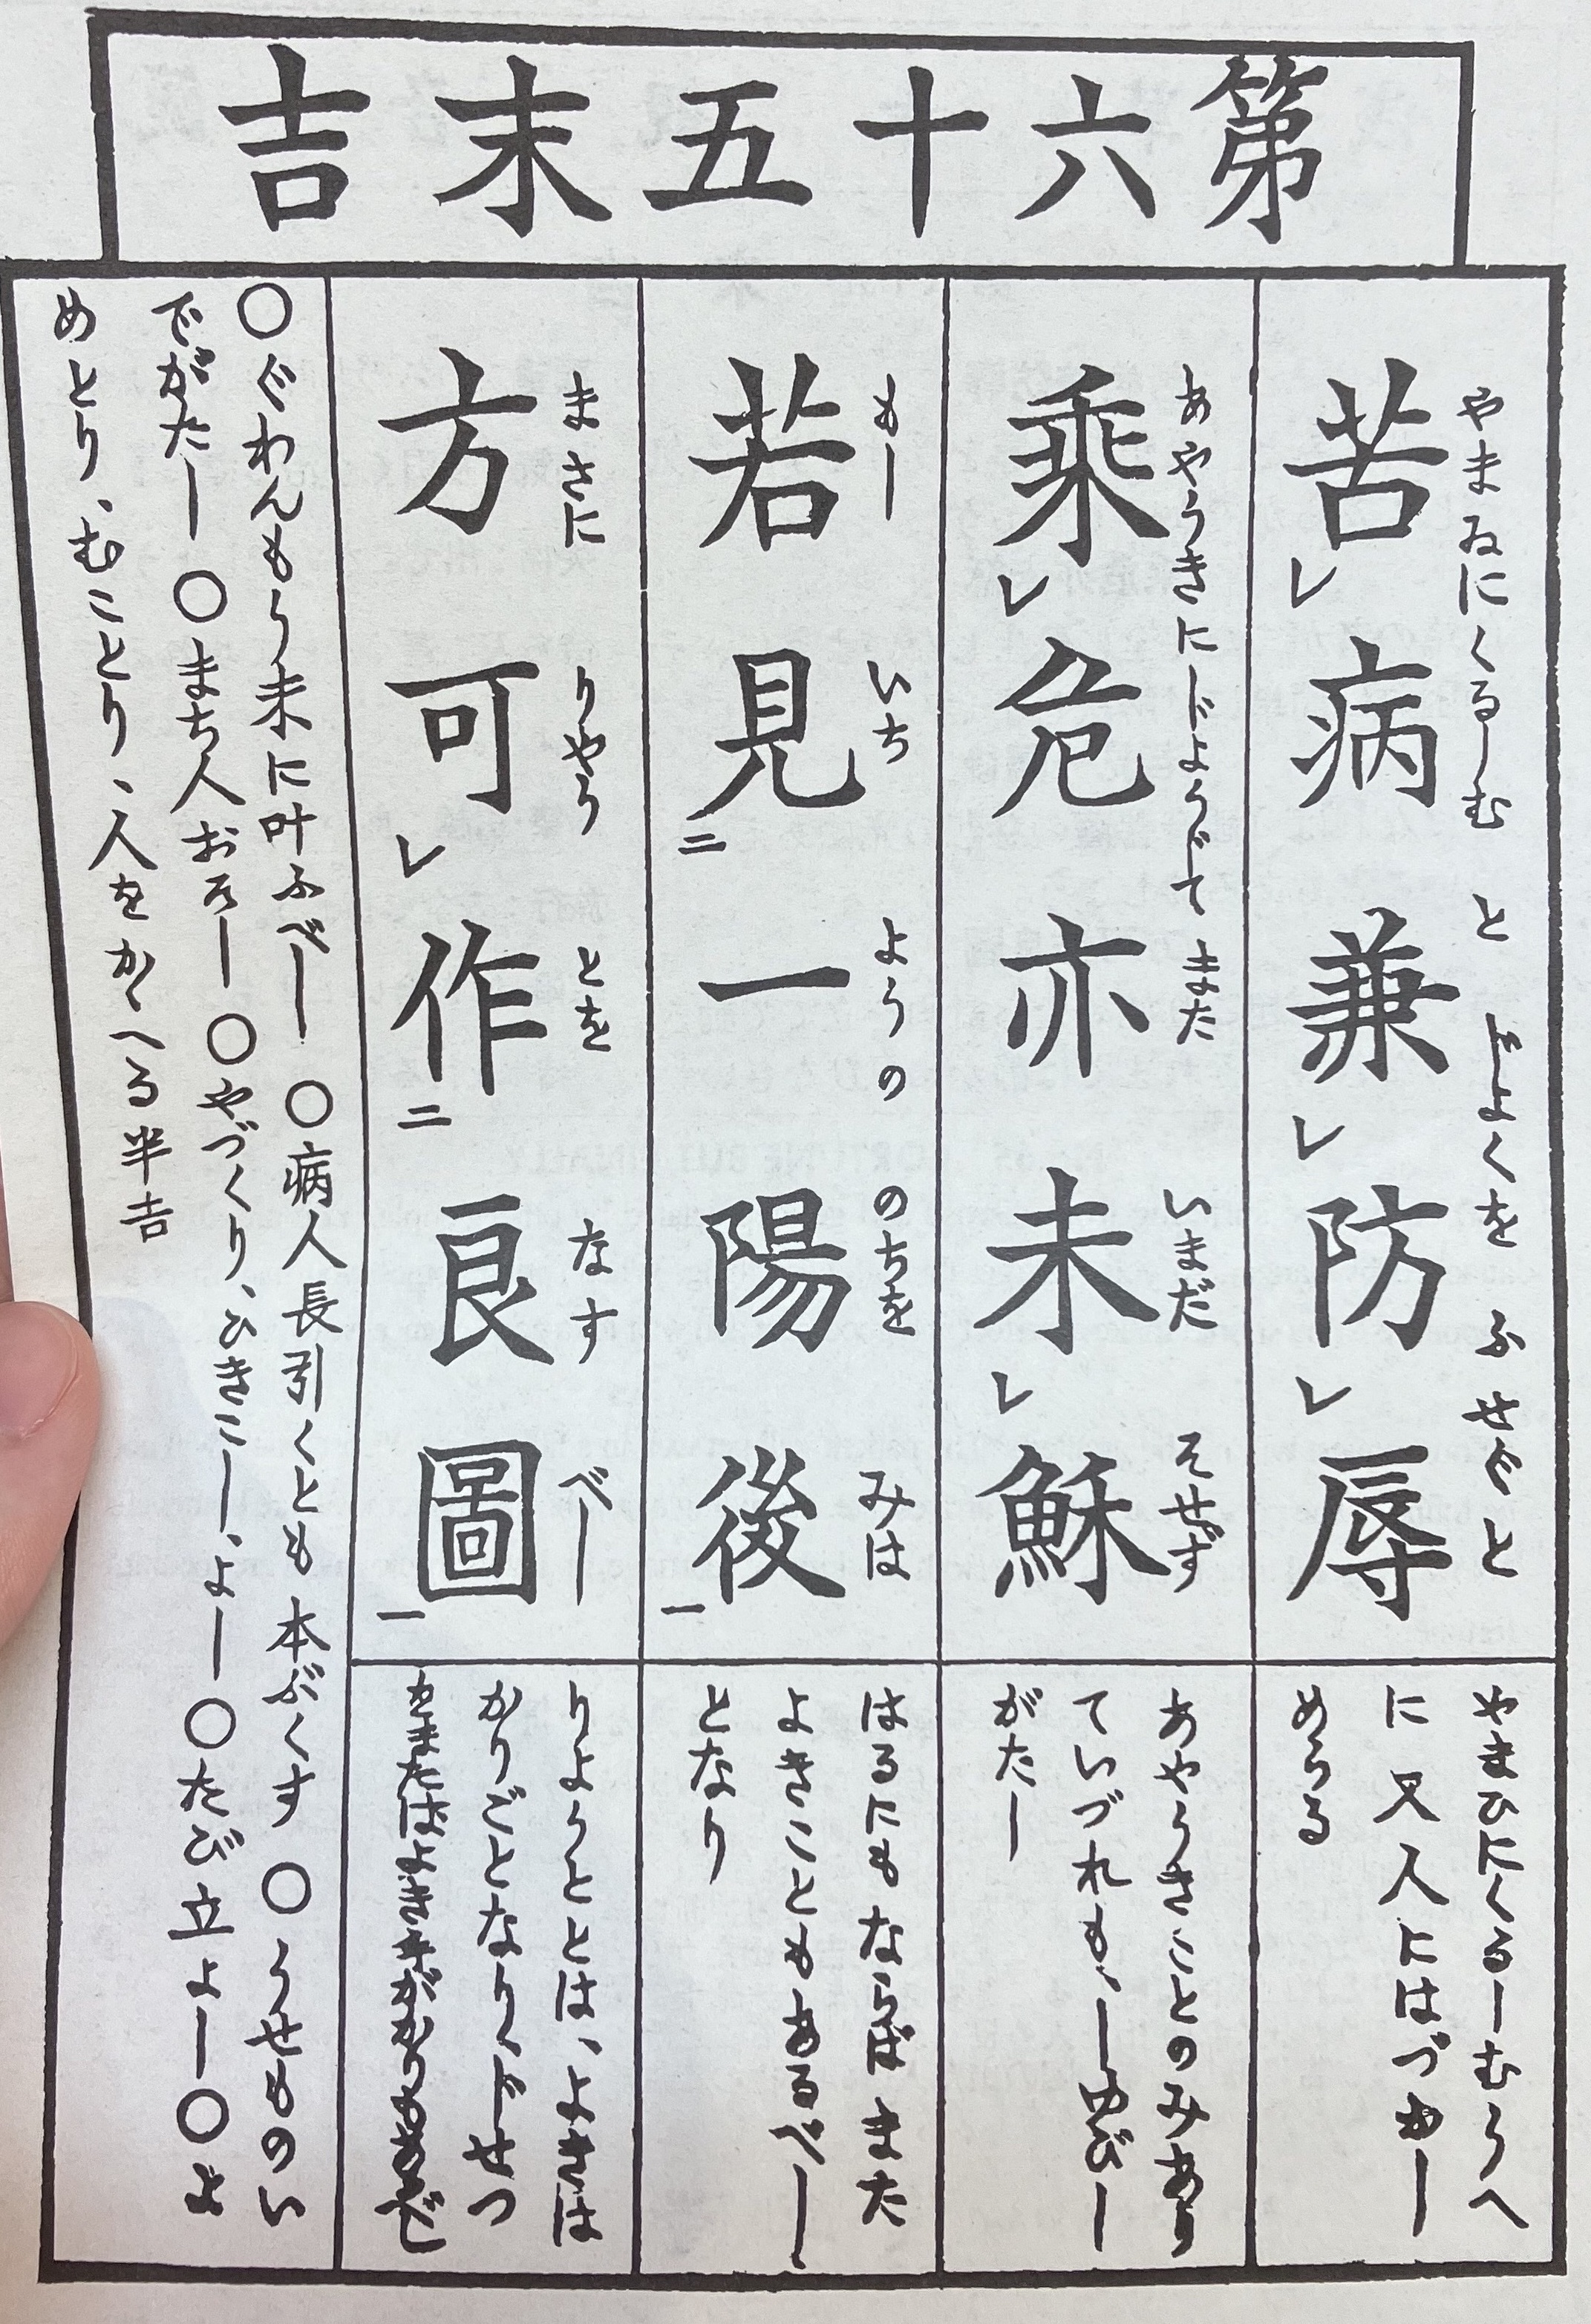 第六十五末吉
やまゐにくるしむ と じよくを ふせぐと
苦レ病兼レ防レ辱
やまひにくるしむうへ
に又人にはづかし
めらるる
あやうきにじようじて また いまだ そせず
乗レ危亦未レ穌
あやうきことのみあり
ていづれも、しのびし
がたし
もし いち ようの のちを みは
若見二一陽後一
はるにもならばまた
よきこともあるべし
となり
まさに りやう とを なす べし
方可レ作二良圖一
りようととは、よきは
かりごとなり
○ぐわんもう末に叶ふべし ○病人長引くとも本ぶくす ○うせものい
でがたし ○まち人おそし ○やづくり、ひきこし、よし ○たび立よし ○よ
めとり、むことり、人をかゝへる半吉